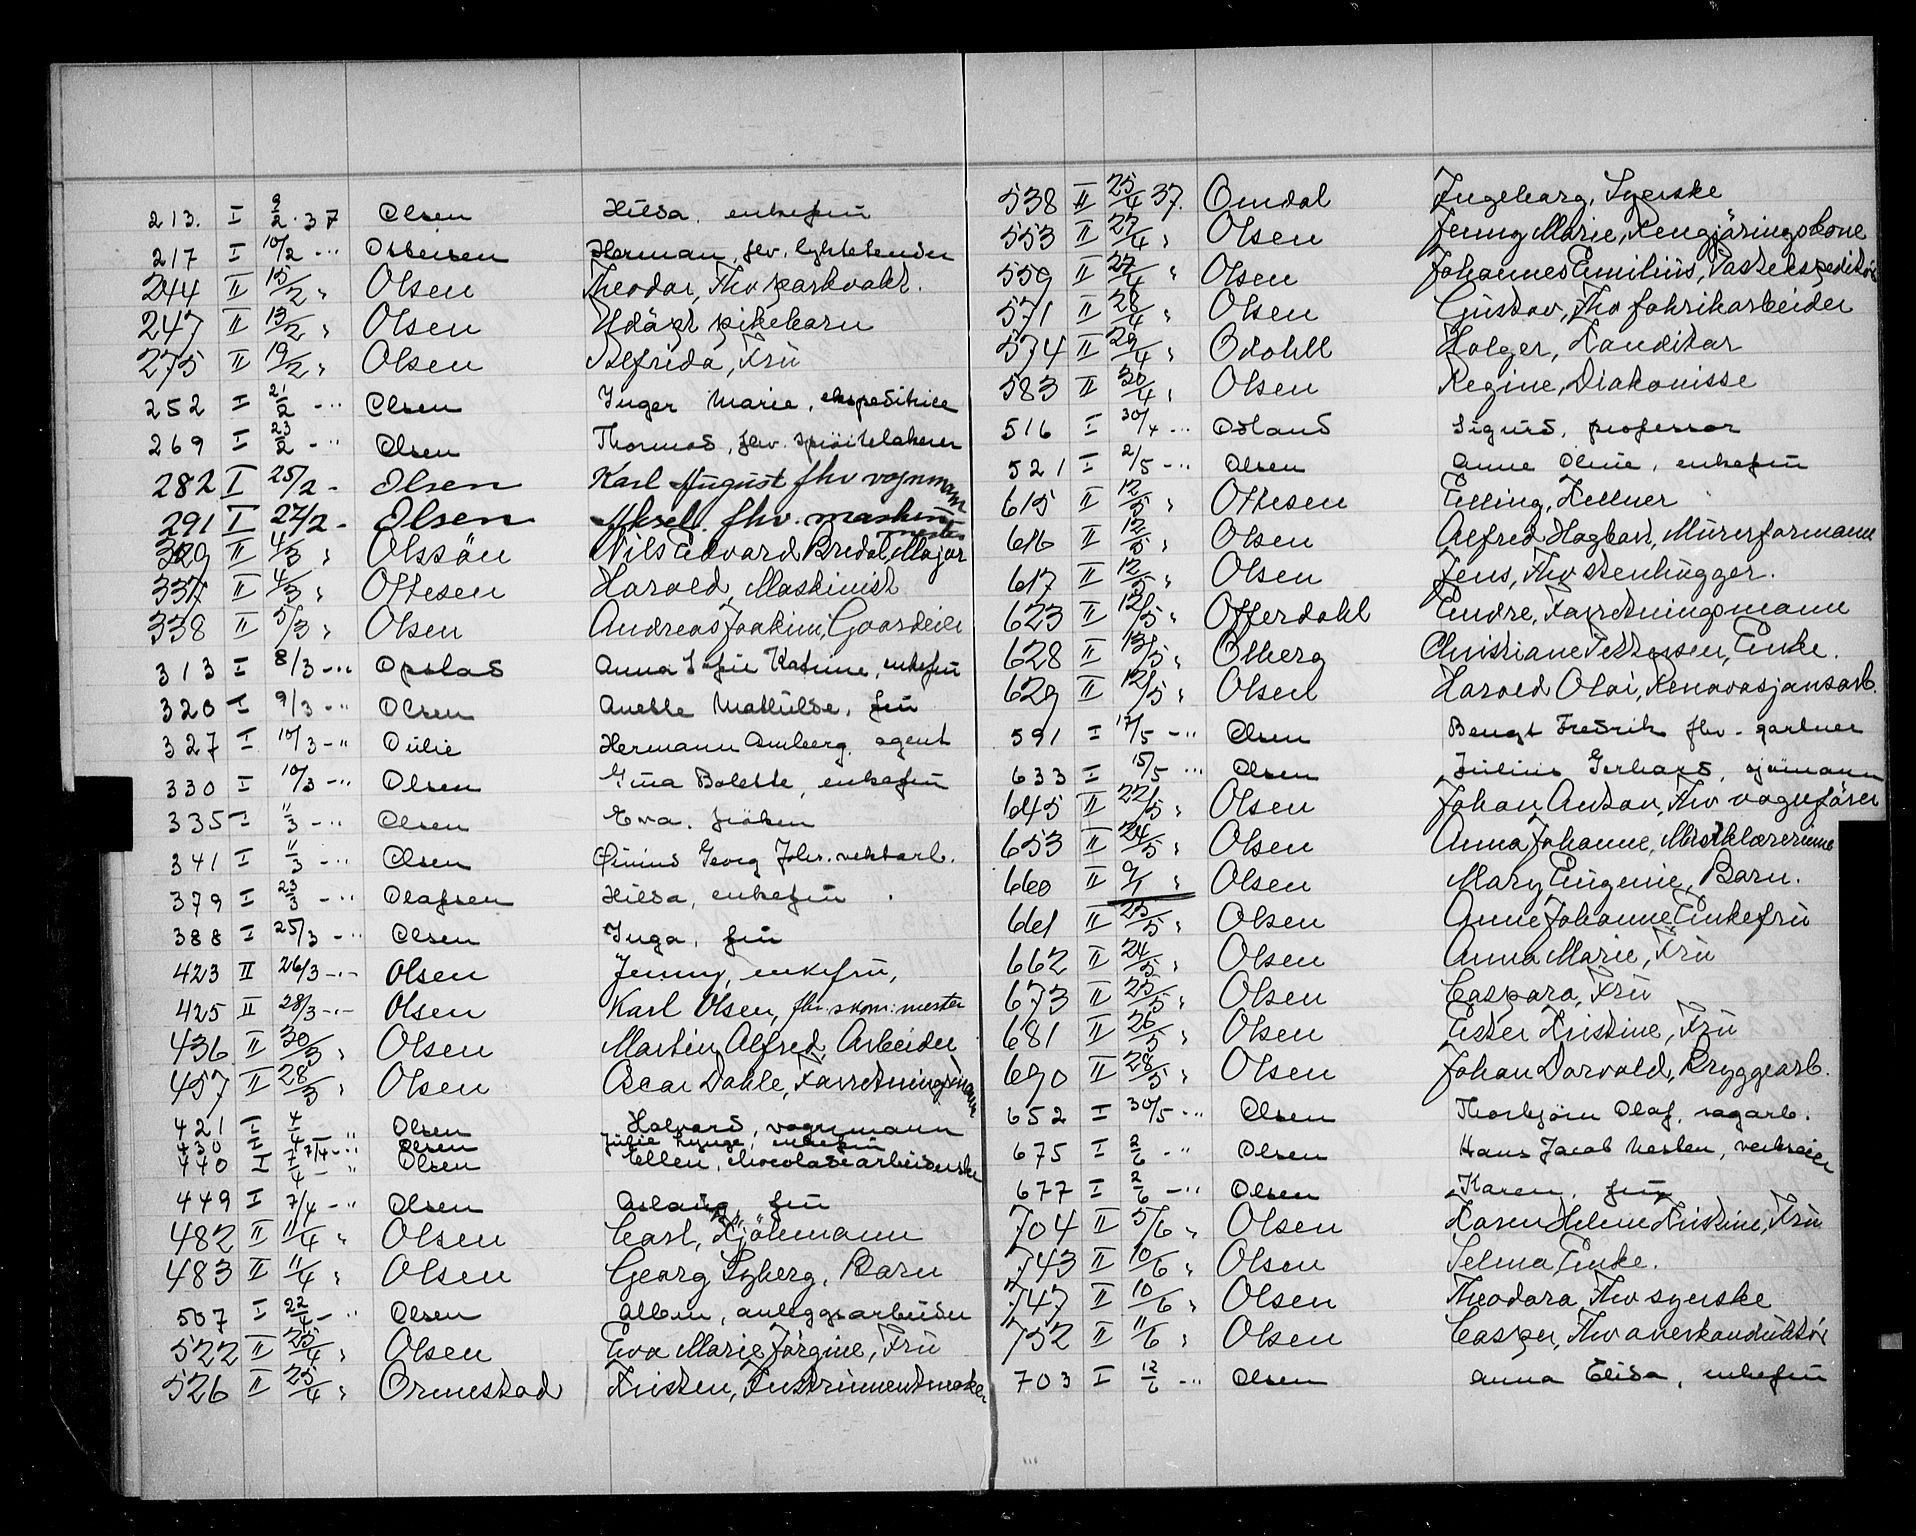 213. I 9/2 . 37 Olsen Hilda, enkefru
217 I 10/2 - " Osteraen Herman, fhv. lyktetender
244 II 15/2 " Olsen Theodor, Fhv parkvakt.
247 II 13/2 " Olsen Udöpt pikebarn
275 II 19/2 " Olsen Alfrida, Fru
252 I 21/2 - " Olsen Inger Marie, ekspeditrice
269 I 23/2 - " Olsen Thomas, fhv.
282 I 25/2 - Olsen Karl August fhv vognmann
291 I 27/2 - Olsen Aksel. fhv. maskinmester
329 II 4/3 " Olssön Nils Edvard Bredal, Major
337 II 4/3 " Ottesen Harald, Maskinist
338 II 5/3 " Olsen Andreas Joakim, Gaardeier
313 I 8/3 - " Opstad Anna Sofie Katrine, enkefru
320 I 9/3 - " Olsen Anette Mathilde, fru
327 I 10/3 - " Oulie Hermann Amberg, agent
330 I 10/3 - " Olsen Gina Bolette, enkefru
335 I 11/3 - " Olsen Eva. fröken
341 I 11/3 - " Olsen Georg Johs. verkstarb.
379 I 23/3 - " Olafsen Hilda, enkefru
388 I 25/3 - " Olsen Inga, fru
423 II 26/3 - " - Olsen Jenny, enkefru,
425 II 28/3 - " - Olsen Karl Olsen, fhv. skom: mester
436 II 30/3 " Olsen Martin Alfred Arbeider
457 II 28/3 " Olsen Oscar Dahle, Forretningsmann
421 I 4/4 - " Olsen Halvard, vognmann
430 I 7/4 - " Olsen Julie Lynge, enkefru
440 I 7/4 - " Olsen Ellen, chocoladearbeiderske
449 I 7/4 - " Olsen Aslaug, fru
482 II 11/4 " Olsen Carl, Sjömann
483 II 11/4 " Olsen Georg Syberg, Barn
507 I 22/4 - " Olsen Albin, anleggsarbeider
522 II 25/4 " Olsen Eva Marie Jörgine, Fru
526 II 25/4 " Ormestad Kristen, Instrumentmaker
538 II 25/4 37. Omdal Ingeborg, Syerske
553 II 27/4 " Olsen Jenny Marie, Rengjöringskone
559 II 27/4 " Olsen Johannes Emilius, Postekspeditör
571 II 28/4 " Olsen Gustav, Fhv fabrikarbeider
574 II 29/4 " Odohll Holger, Konditor
583 II 30/4 " Olsen Regine, Diakonisse
516 I 30/4 - " Østland Sigurd, professor
521 I 2/5 - " Olsen Anne Oline, enkefru
615 II 12/5 " Ottesen Elling, Kellner
616 II 12/5 " Olsen Alfred Hagbart, Murerformann
617 II 12/5 " Olsen Jens, Fhv stenhugger.
623 II 12/5 " Offerdahl Endre, Forretningsmann
628 II 13/5 " Olberg Christiane Pettersen, Enke.
629 II 12/5 " Olsen Harald Olai, Renovasjonsarb.
591 I 12/5 - " Olsen Bengt Fredrik fhv. gartner
633 I 15/5 - " Olsen Julius Gerhard, sjömann
645 II 22/5 " Olsen Johan Anton, Fhv vognfører
653 II 24/5 " Olsen Anna Johanne, Mistklærerinne
660 II 9/1 " Olsen Mary Eugenie, Barn.
661 II 25/5 " Olsen Anne Johanne Enkefru
662 II 24/5 " Olsen Anna Marie, Fru
673 II 25/5 " Olsen Caspara, Fru
681 II 26/5 " Olsen Ester Kristine, Fru
690 II 28/5 " Olsen Johan Dorvald, Bryggearb.
652 I 30/5 - " Olsen Thorbjörn Olaf, sagarb.
675 I 2/6 - " Olsen Hans Jacob Nesten, verkseier
677 I 2/6 - " Olsen Karen, fru
704 II 5/6 " Olsen Karen Helene Kristine, Fru
743 II 10/6 " Olsen Selma Enke.
747 II 10/6 " Olsen Theodora, Fhv syerske
752 II 11/6 " Olsen Casper, Fhv overkonduktör
703 I 12/6 - " Olsen Anna Elida, enkefru